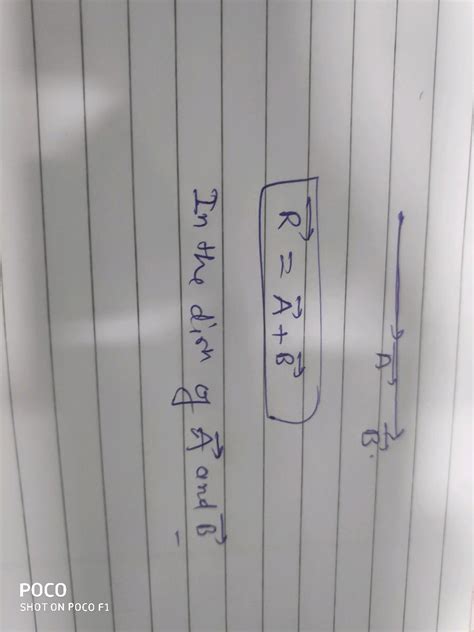 A⃗ B⃗.
R⃗ = A⃗ + B⃗
In the dirn of A⃗ and B⃗
POCO
SHOT ON POCO F1